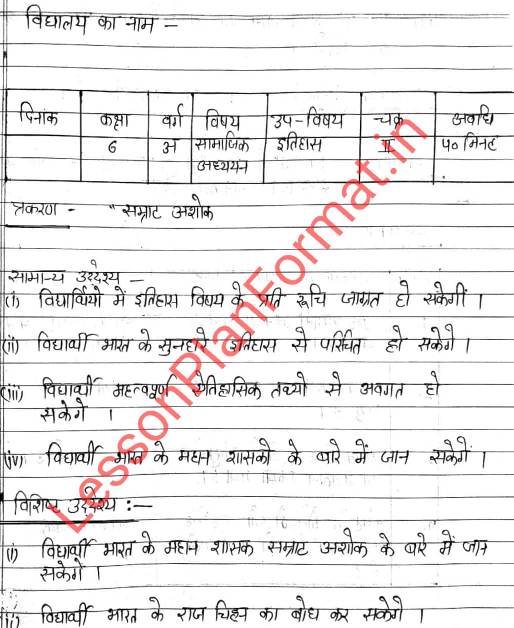 विद्यालय का नाम –
दिनांक कक्षा वर्ग विषय उप-विषय चक्र अवधि
6 अ सामाजिक इतिहास II ५० मिनट
अध्ययन
प्रकरण - " सम्राट अशोक
सामान्य उद्देश्य –
(i) विद्यार्थियो में इतिहास विषय के प्रति रूचि जाग्रत हो सकेगीं ।
(ii) विद्यार्थी भारत के सुनहारे इतिहास से परिचित हो सकेगे ।
(iii) विद्यार्थी महत्वपूर्ण ऐतिहासिक तथ्यो से अवगत हो
सकेगे ।
(iv) विद्यार्थी भारत के महान शासको के बारे में जान सकेगें ।
विशिष्ट उद्देश्य :—
(i) विद्यार्थी भारत के महान शासक सम्राट अशोक के बारे में जान
सकेगें ।
(ii) विद्यार्थी भारत के राज चिह्न का बोध कर सकेगे ।
LessonPlanFormat.in